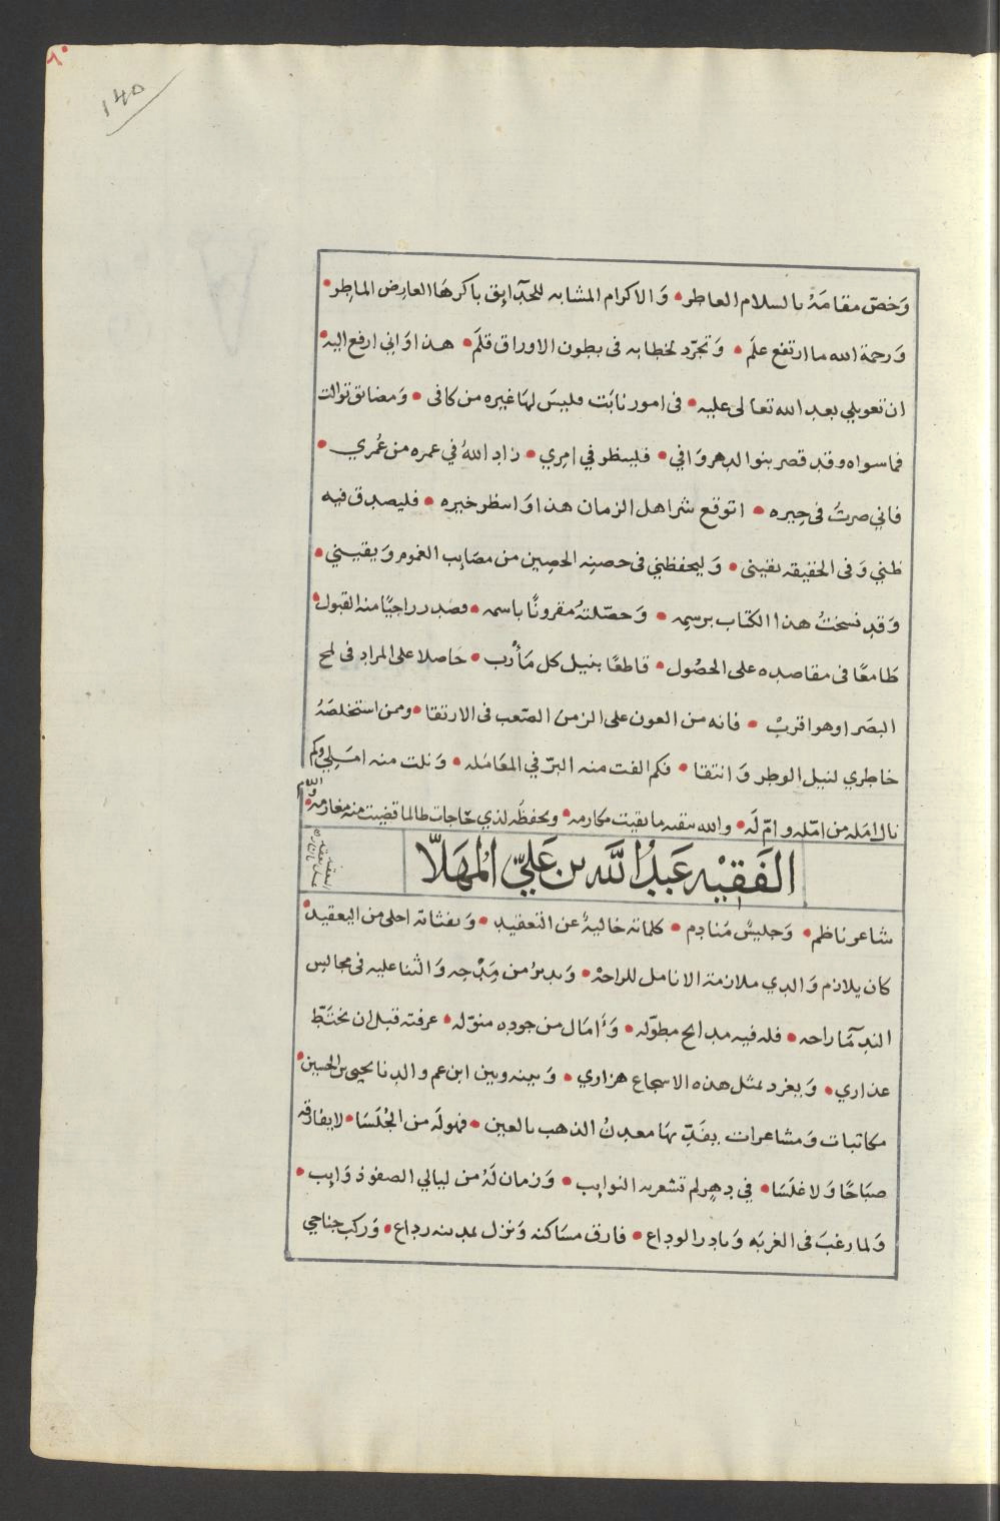 ١٤٥
وَخصّ مقامَهُ بالسلام العاطر • وَالاكرام المشابه للحدَآيق باكرهَا العارض الماطر •
وَرحمة الله ما ارتفع علَم • وَتجرّد لخطابه فى بطون الاوراق قلَم • هذا وَانى ارفع اليه •
ان تعويلي بعد الله تعالى عليه • فى امور نابَت فليسَ لهَا غيره من كافى • وَمضائق توالت
فما سواه وقد قصر بنوا الدهر وَافي • فلينظر في امري • زاد اللهُ في عمره من عُمري •
فاني صرتُ فى حِيره • اتوقع شر اهل الزمان هذا وَانتظر خيره • فليصدق فيه
ظني وَفى الحقيقه يقينى • وَليحفظني في حصنِه الحصِين من مصَايب الغموم وَيقيني •
وَقد نسختُ هذا الكتاب برسمِه • وَحصّلتهُ مقرونًا باسمه • فصدر راجيًا منه القبول •
طَامعًا فى مقاصده على الحصُول • قاطعًا بنيل كل مَأرب • حَاصلا على المراد فى لمح
البصَر او هو اقربْ • فانه من العون على الزمن الصّعب فى الارتقا • وممن استخلصَهُ
خاطري لنيل الوطر وَانتقا • فكم الفت منه البرّ في المعَامَله • وَنلت منه امَلِي وكم
نال امَله من امّله وامّ لَه • والله يبقيه ما بقيت مكارمه • ويحفظَه لذي حَاجات طالما قضيت منه مغارمه •
الفَقِيْه عَبدُ اللَّه بن عَليّ المُهَلَّا
شاعر ناظم • وَجليسٌ مُنادِم • كلماته خاليةٌ عن التعقيد • وَنفثاته احلى من اليعقيد •
كان يلازم وَالدي ملازمة الانامل للراحهْ • وَيديرُ من مِدَحِه وَالثنا عليه فى مجالس
الندمَآ راحه • فله فيه مدايح مطوّله • وَأمَال من جوده منوّله • عرفته قبل ان يختَطّ
عذاري • وَيغرد بمثل هذه الاسجاع هزاري • وَبينه وبين ابن عم والدنا يحيى بن الحسين •
مكاتبات وَمشاعرات يفَدّيهَا معدنُ الذهب بالعين • فهو لَه من الجُلَسَا • لا يفارقه
صبَاحًا وَلا غلَسَا • في دهرٍ لم تشعر به النوايب • وَزمان لَهُ من ليالي الصفو ذوَايب •
وَلما رغبَ فى الغربَه وَبادر الوداع • فارق مسَاكنه وَنزل بمدينه رداع • وَركب جناحي